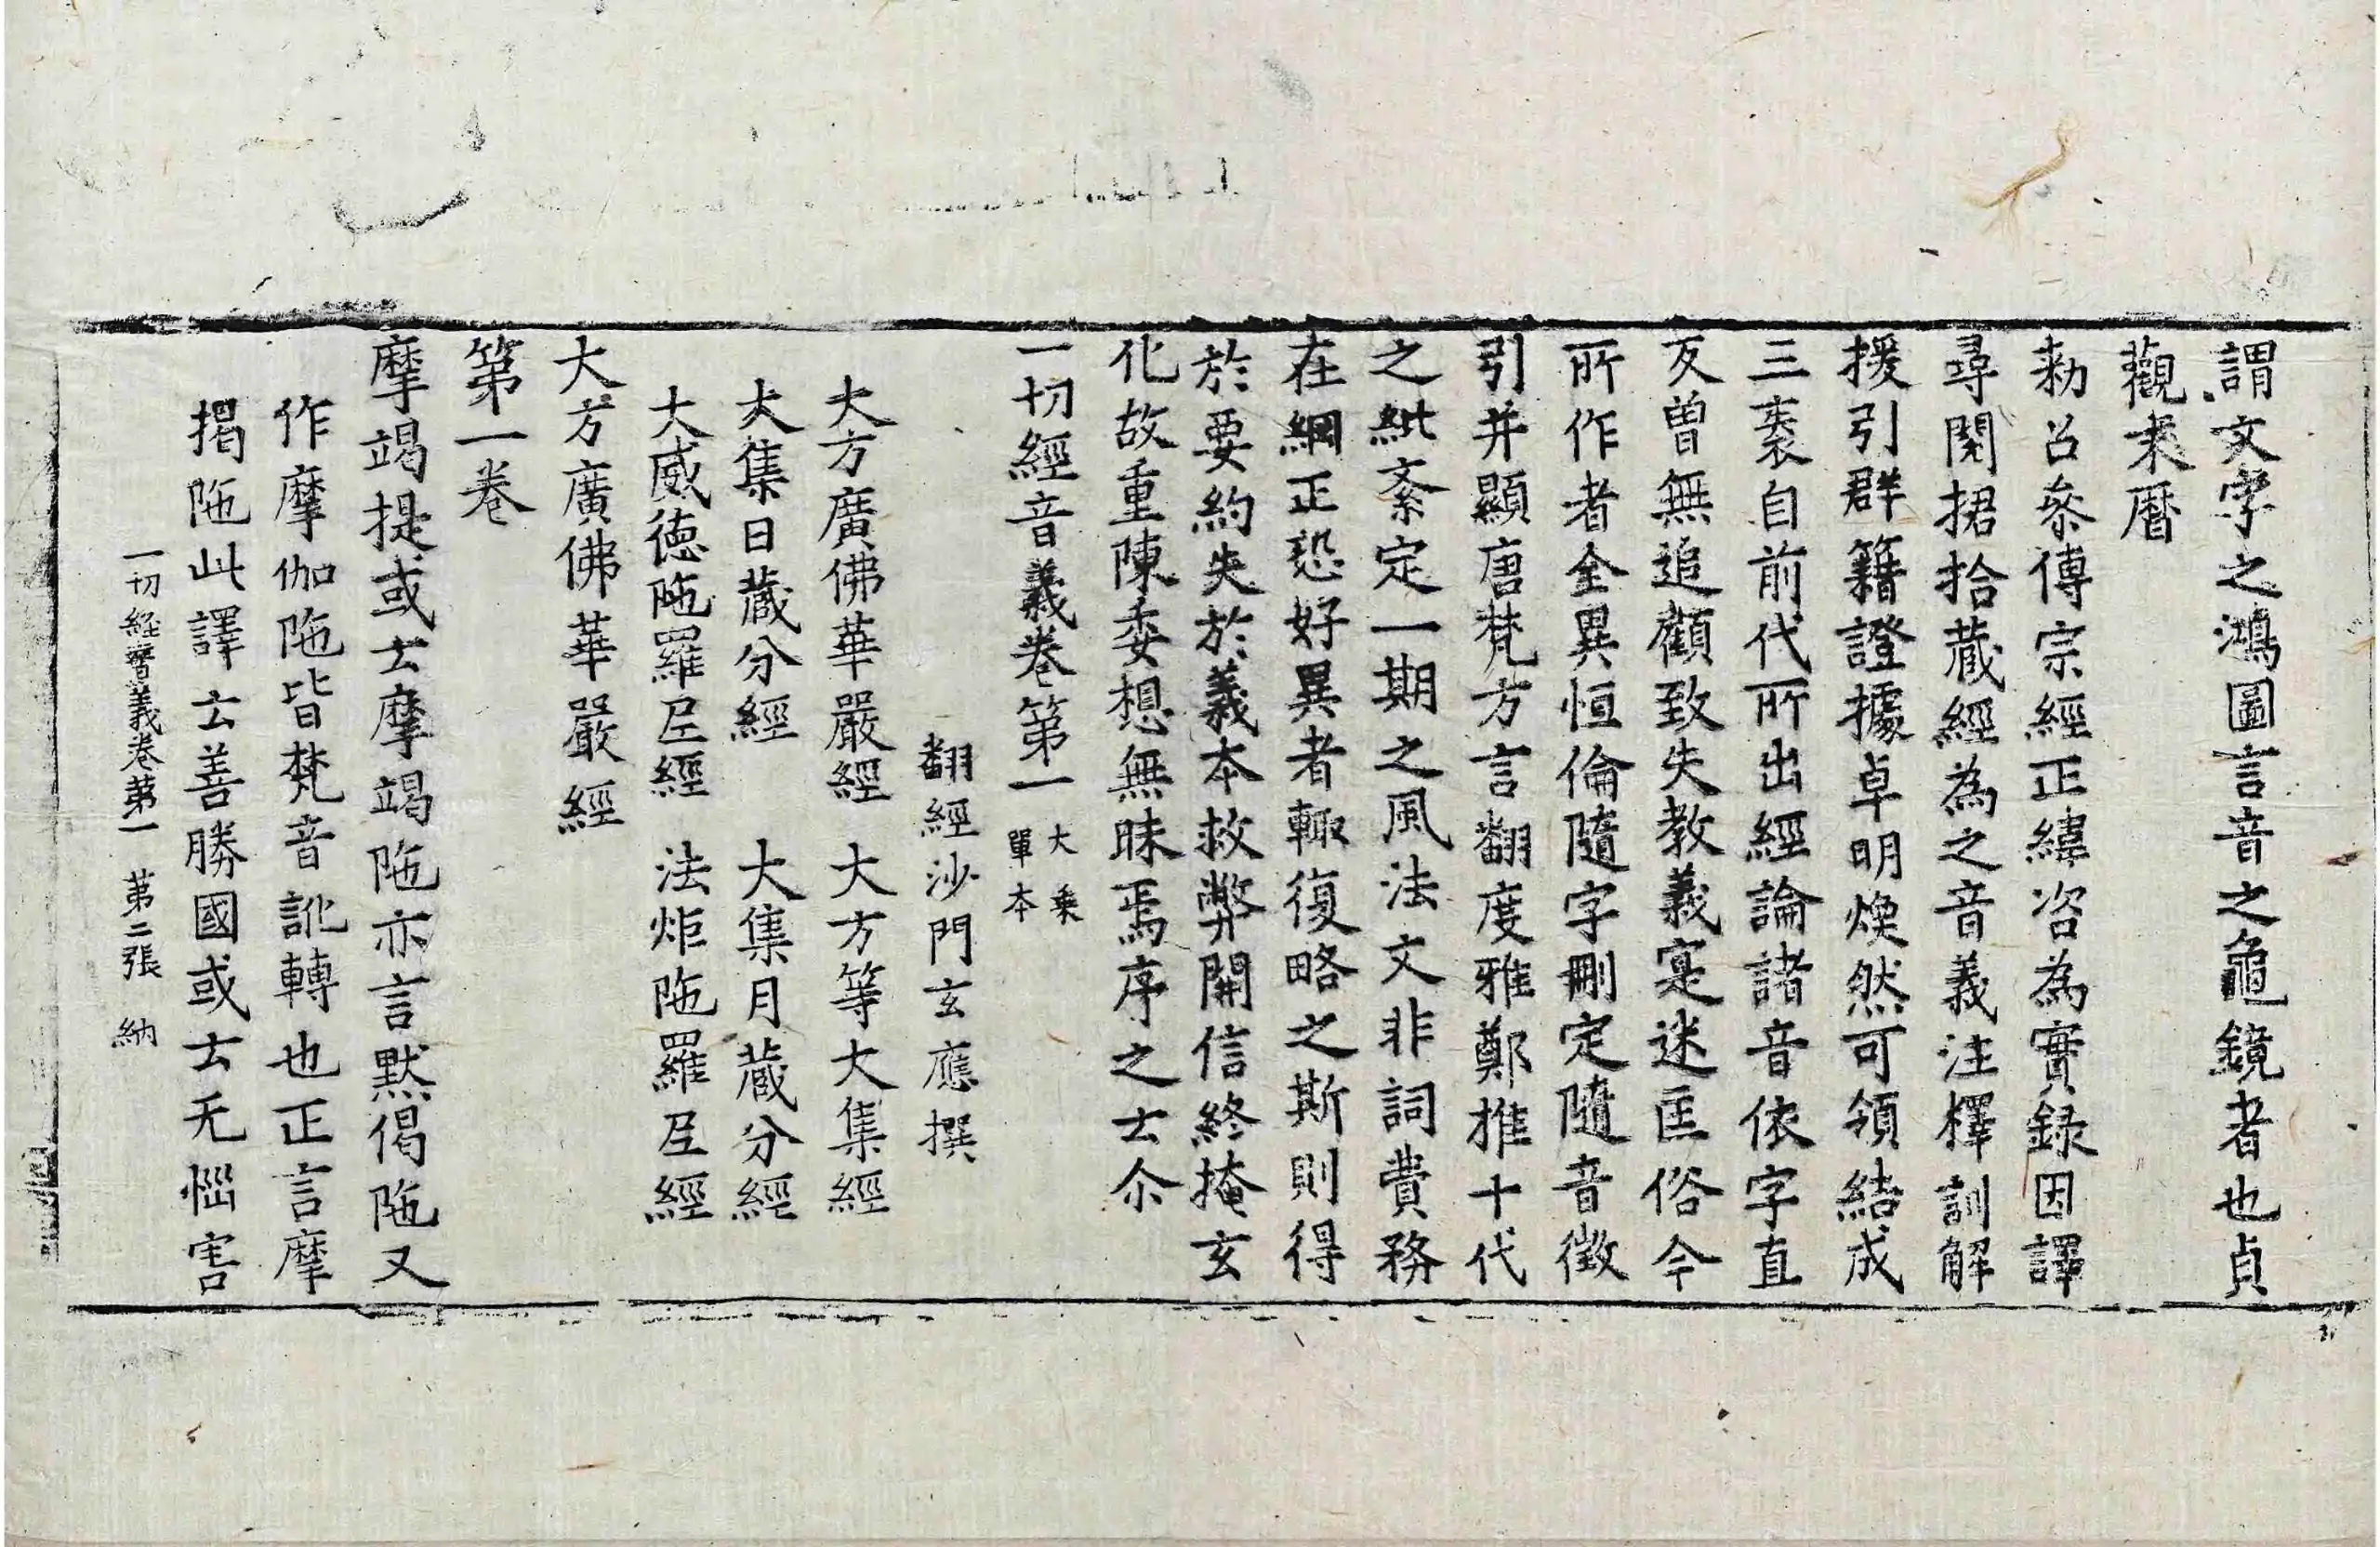 謂文字之鴻圖言音之龜鏡者也貞
觀末曆
勑召叅傳宗經正緯咨為實録因譯
尋閱捃拾藏經為之音義注釋訓解
援引群籍證據卓明煥然可領結成
三袠自前代所出經論諸音依字直
反曽無追顧致失教義寔迷匡俗今
所作者全異恒倫隨字刪定隨音徴
引并顯唐梵方言翻度雅鄭推十代
之紕紊定一期之風法文非詞費務
在綱正恐好異者輙復略之斯則得
於要約失於義本救弊開信終掩玄
化故重陳委想無昧焉序之云尒
一切經音義卷第一 大乗單本
翻經沙門玄應撰
大方廣佛華嚴經 大方等大集經
大集日蔵分經 大集月蔵分經
大威徳陁羅𡰱經 法炬陁羅𡰱經
大方廣佛華嚴經
第一卷
摩竭提或云摩竭陁亦言黙偈陁又
作摩伽陁皆梵音訛轉也正言摩
揭陁此譯云善勝國或云无惱害
一切経音義卷苐一 苐二張 納